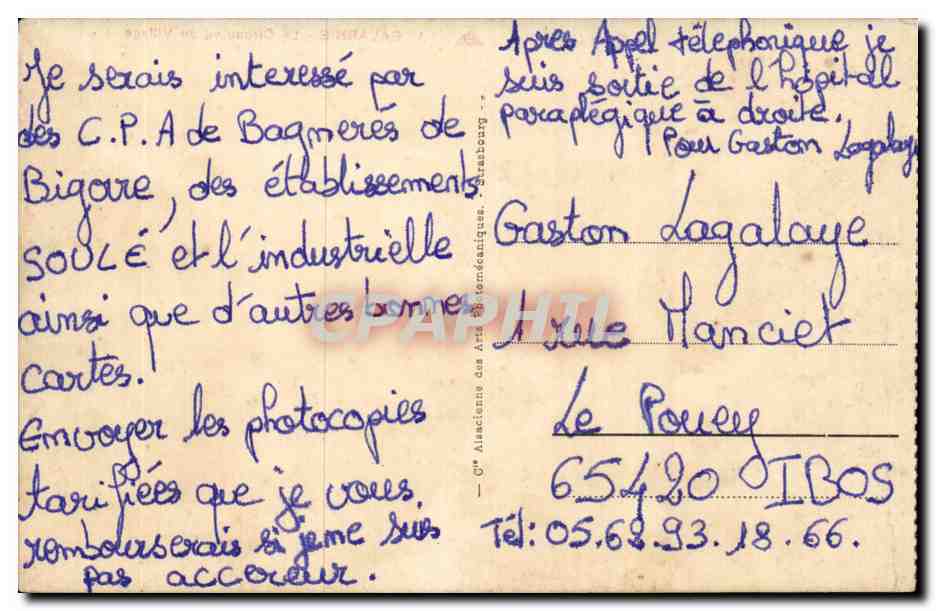 Je serais interessé par
des C.P.A de Bagnères de
Bigorre, des établissements
SOULÉ et l'industrielle
ainsi que d'autres bonnes
cartes.
Envoyer les photocopies
tarifiées que je vous
rembourserais si je ne suis
pas accereur.
Cie Alsacienne des Arts Photomécaniques. - Strasbourg
Après Appel télephonique je
suis sortie de l'hôpital
paraplégique à droite.
Pour Gaston Lagalaye
Gaston Lagalaye
1 rue Manciet
Le Pouey
65420 IBOS
Tél: 05.62.93.18.66.
CPAPHIL